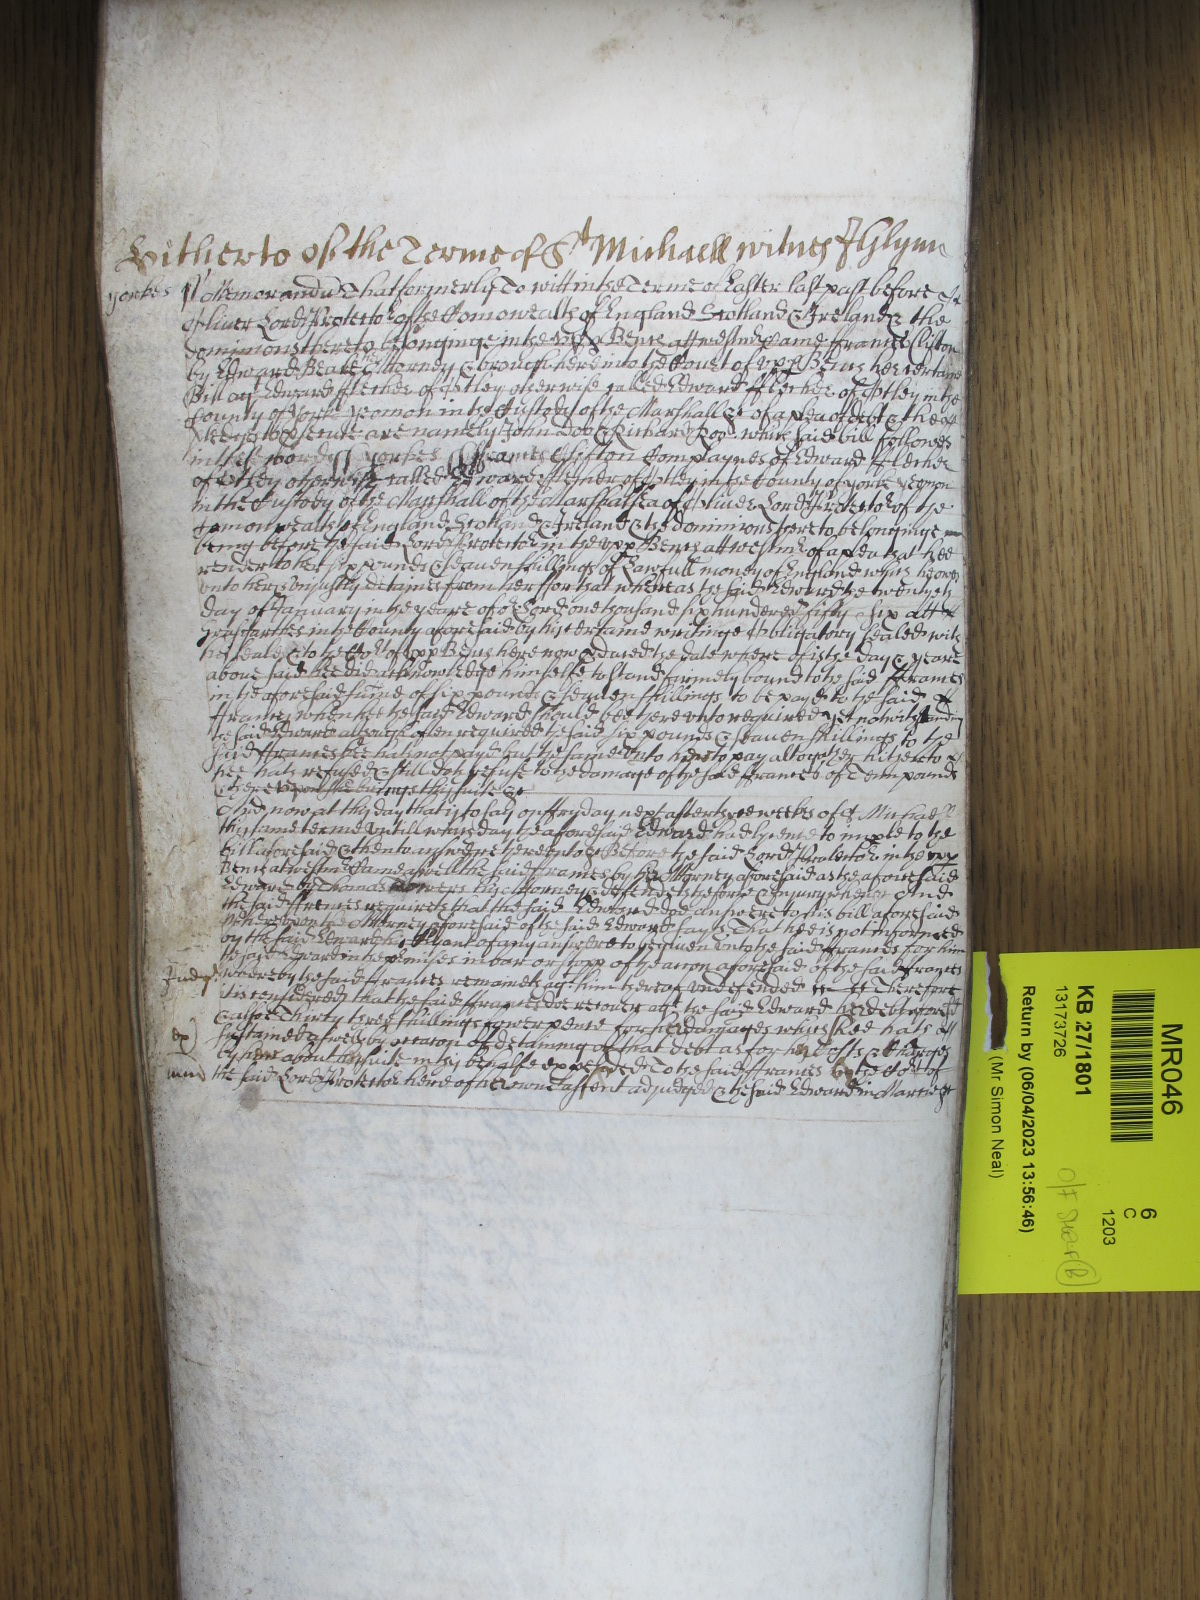 Hitherto of the Terme of St Michaell witnes J Glynn
yorkes Memorandu That formerly To witt in the Terme of Easter last past before
Oliver Lord Protector of the Comonwealth of England Scotland & Ireland & the
dominions thereto belonginge in the upp Bench att westmr came ffrances Clifton
by Edward Beale her Attorney & brought here into the Court of upp Bench her certaine
Bill agt Edward ffletcher of Otley otherwise called Edward ffletcher of Otley in the
County of yorke yeoman in the Custody of the Marshall &c of a plea of debt & there are
pledges to prosecute are namely John Doo & Richard Roo which said bill followes
in these words yorkes ffrances Clifton Complaynes of Edward ffletcher
of Otley otherwise called Edward ffletcher of Otley in the County of yorke yeoman
in the Custody of the Marshall of the Marshalsea of Oliver Lord Protector of the
Comonwealth of England Scotland & Ireland & the dominions thereto belonginge
being before the said Lord Protector in the upp Bench att westmr of a plea that hee
render to her six pounds & seaven shillings of Lawfull money of England which he owes
unto her & unjustly detaines from her ffor that whereas the said Edward the twentyeth
day of January in the yeare of or Lord one thousand six hundered fifty & six att
in the County aforesaid by his certaine writinge Obligatory sealed with
his seale & to the Cort of upp Bench here now shewed the date whereof is the day & yeare
above said hee did acknowledge himselfe to stand firmely bound to the said ffrances
in the aforesaid sume of six pounds & seaven shillings to be payd to the said
ffrances when hee the said Edward should bee thereunto required yet notwithstandinge
the said Edward although often required the said six pounds & seaven shillings to the
said ffrances hee hath not payd but the same unto her to pay altogether hitherto
hee hath refused & still doth refuse to the damage of the said ffrances of Tenn pounds
& thereupon she brings this suite &c
And now at this day that is to say on ffryday next after three weekes of St Michaell
this same terme untill which day the aforesaid Edward had lycence to imple to the
bill aforesaid & then to answere thereunto &c Before the said Lord Protector in the upp
Bench at westmr came aswell the said ffrances by her Attorney aforesaid as the aforesaid
Edward by Thomas Powers his Attorney & defendeth the force & injury when &c And
the said ffrances requireth that the said Edward doe answere to his bill aforesaid
whereupon the Attorney aforesaid of the said Edward sayth That hee is not informed
by the said Edward his Clyant of any answere to be given unto the said ffrances for him
the said Edward in the premises in bar or stopp of the accon aforesaid of the said ffrances
Judgt whereby the said ffrances remaineth agt him thereof undefended &c Therefore
it is considered that the said ffrances doe recover agt the said Edward her debt aforesd
& alsoe Thirty three shillings fower pence for her damages which shee hath
sustained aswell by reason of detaining of that debt as for her Costs & Charges
by her about her suite in this behalfe expended To the said ffrances by the Cort of
the said Lord Protector here of her owne assent adjudged & the said Edward in Marcie &c
MR046
6
C
1203
KB 27/1801
13173726
Return by (06/04/2023 13:56:46)
(Mr Simon Neal)